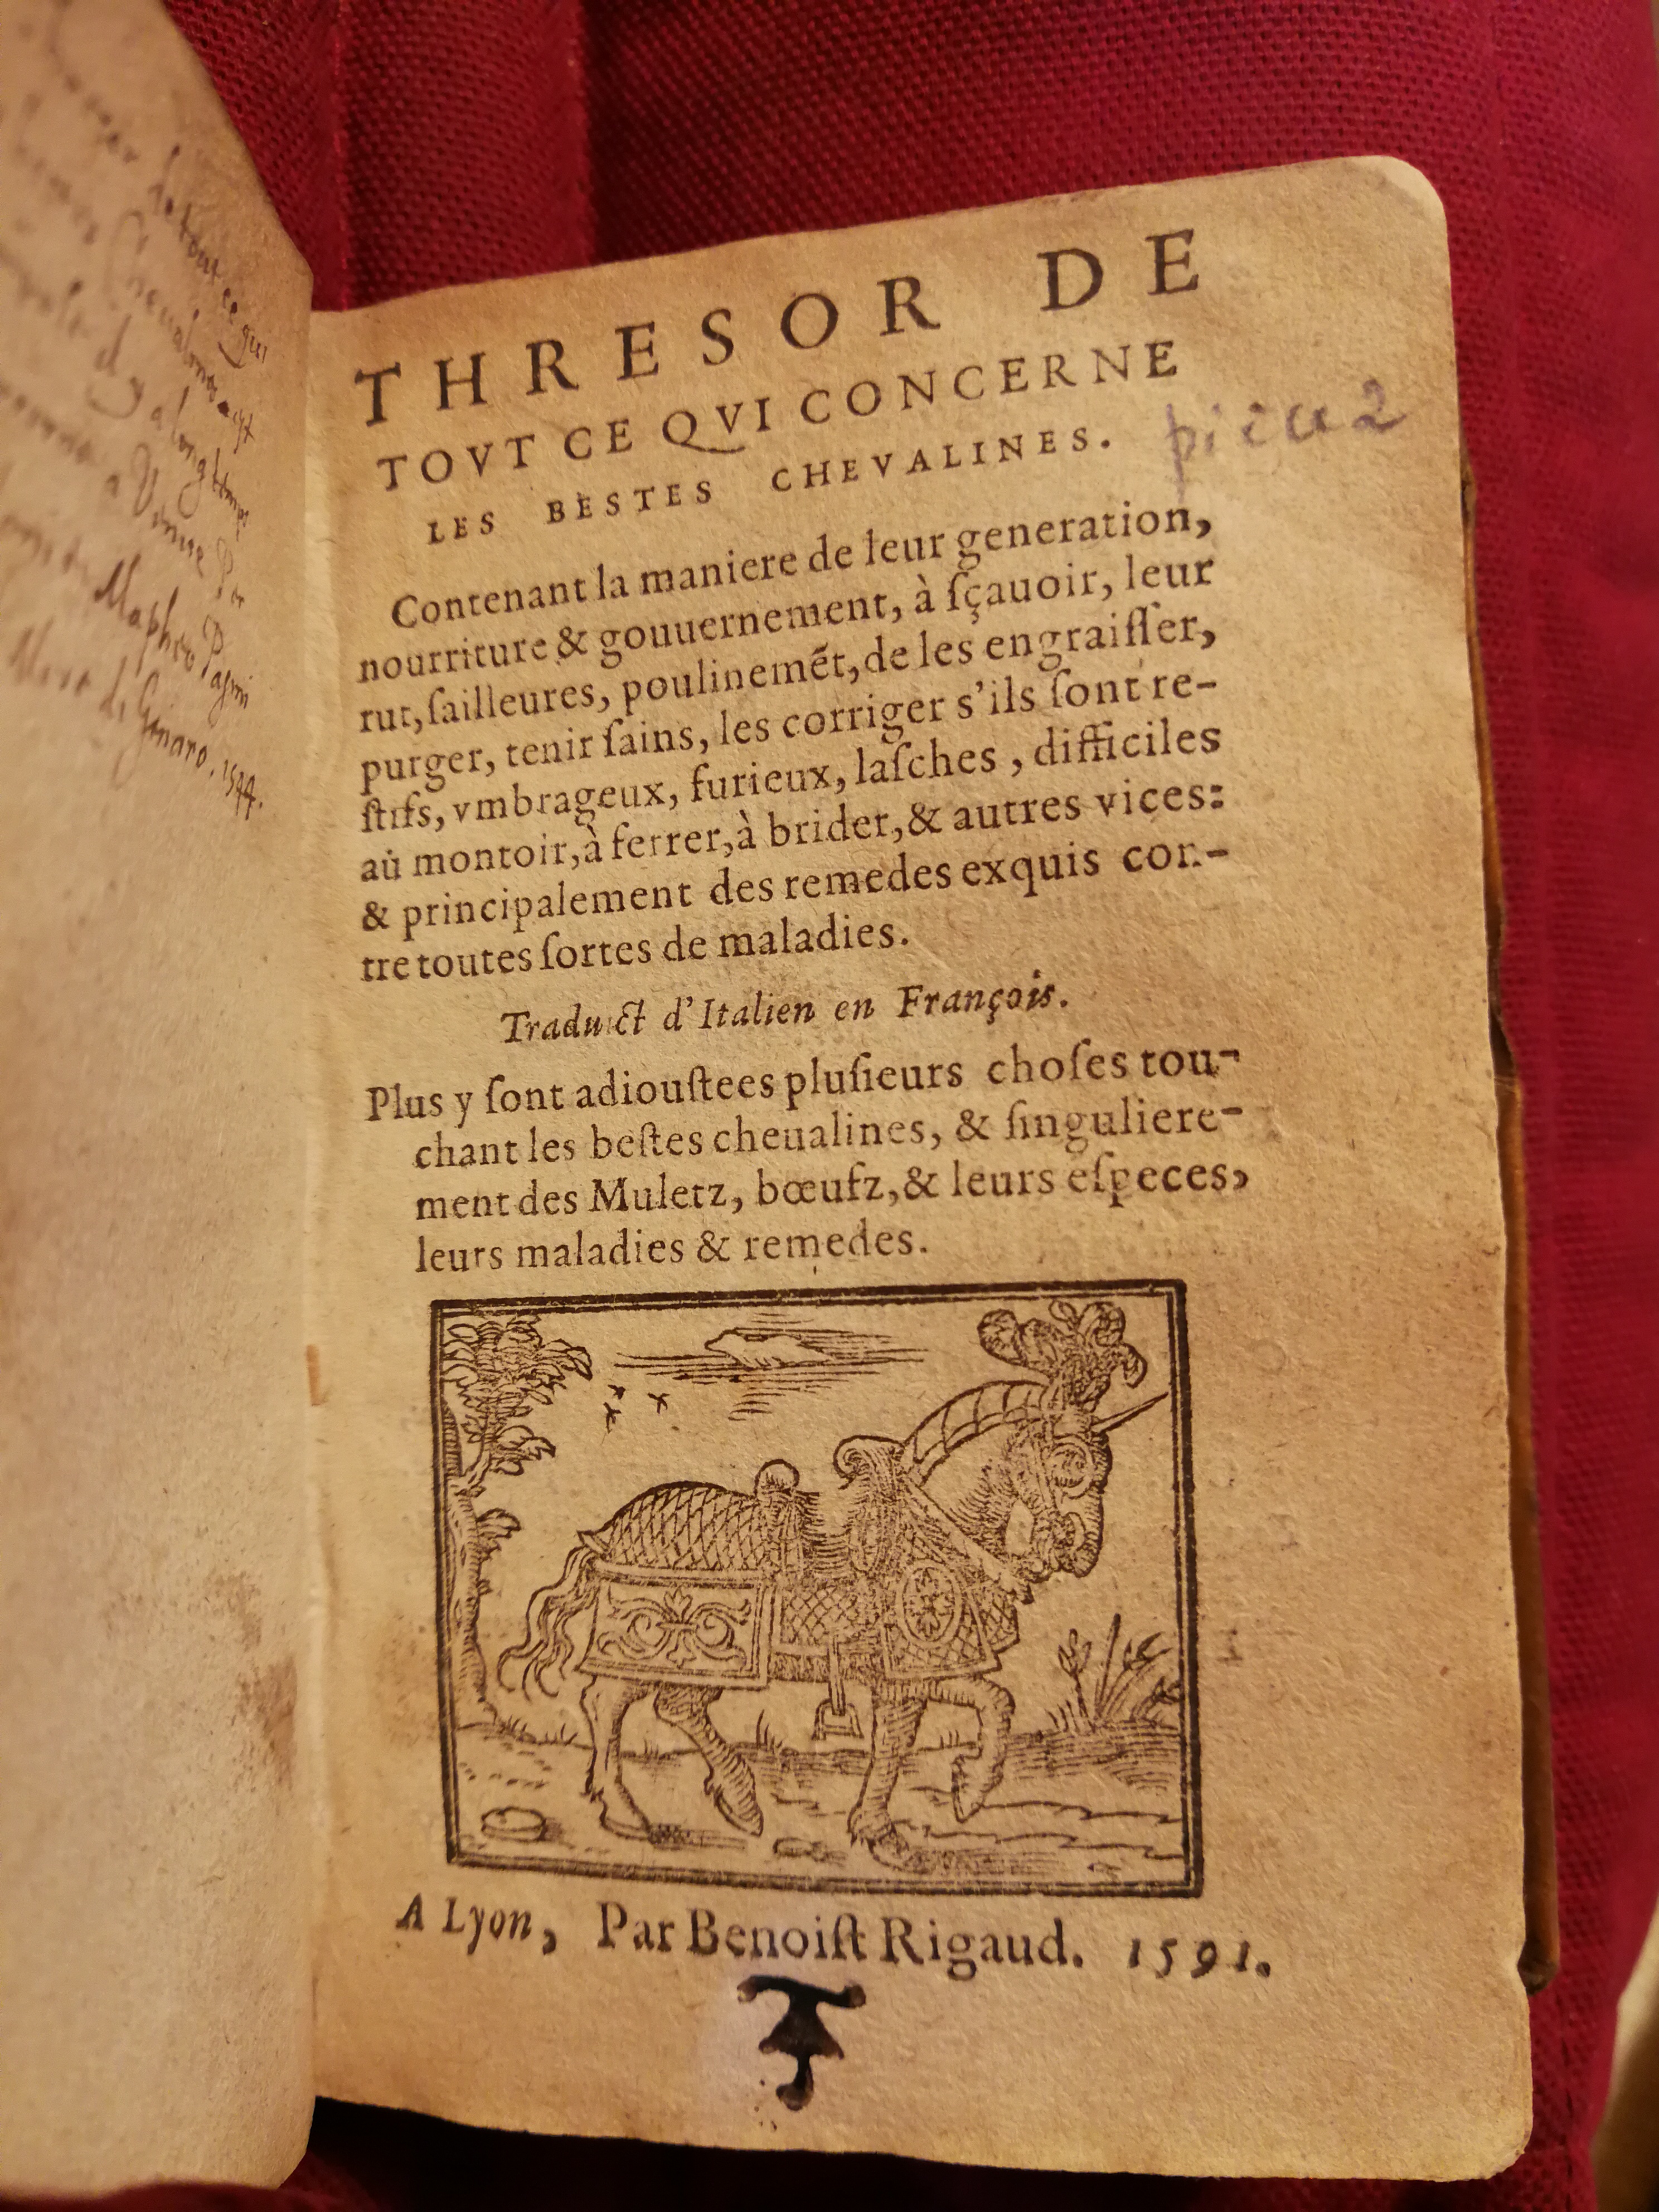 de tout ce qui
a longtemps
a Venise Par
Mapheo Pasini
Mese di Genaro. 1544.
THRESOR DE
TOVT CE QVI CONCERNE
LES BESTES CHEVALINES.
Contenant la maniere de leur generation,
nourriture & gouuernement, à ſçauoir, leur
rut, ſailleures, poulinemẽt, de les engraiſſer,
purger, tenir ſains, les corriger s'ils ſont re-
ſtifs, vmbrageux, furieux, laſches, difficiles
au montoir, à ferrer, à brider, & autres vices:
& principalement des remedes exquis con-
tre toutes ſortes de maladies.
Traduict d'Italien en François.
Plus y ſont adiouſtees pluſieurs choſes tou-
chant les beſtes cheualines, & ſinguliere-
ment des Muletz, bœufz, & leurs eſpeces,
leurs maladies & remedes.
A Lyon, Par Benoiſt Rigaud. 1591.